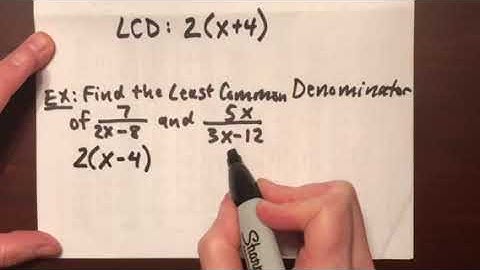 LCD: 2(x+4)
EX: Find the Least Common Denominator
of 7/2x-8 and 5x/3x-12
2(x-4)
Sharpie